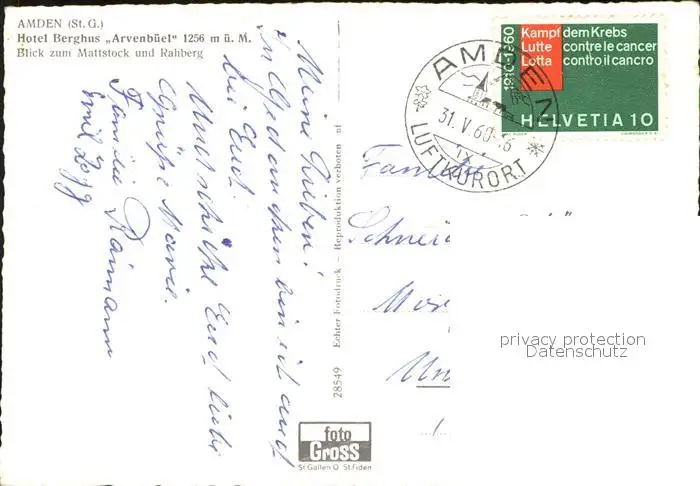 AMDEN (St. G.)
Hotel Berghus „Arvenbüel" 1256 m ü. M.
Blick zum Mattstock und Rahberg
Meine Lieben!
In Gedanken bin ich auch
bei Euch.
Und schickt Euch liebe
Grüsse Marie.
Familie Raimann
28549 Echter Fotodruck - Reproduktion verboten nf
1910-1960
Kampf dem Krebs
Lutte contre le cancer
Lotta contro il cancro
HELVETIA 10
AMDEN
31. V. 60
LUFTKURORT
Familie
privacy protection
Datenschutz
foto
Gross
St Gallen O St. Fiden